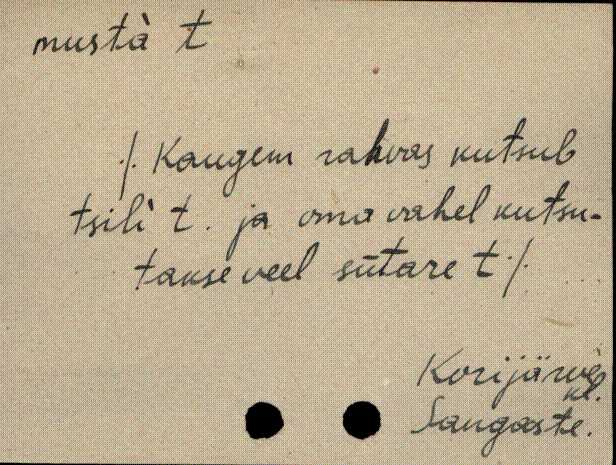 mustà t
./. Kaugem rahvas kutsub
tsilì t. ja oma vahel kutsu-
takse veel sütare t ./.
Korijärve
kl.
Sangaste.